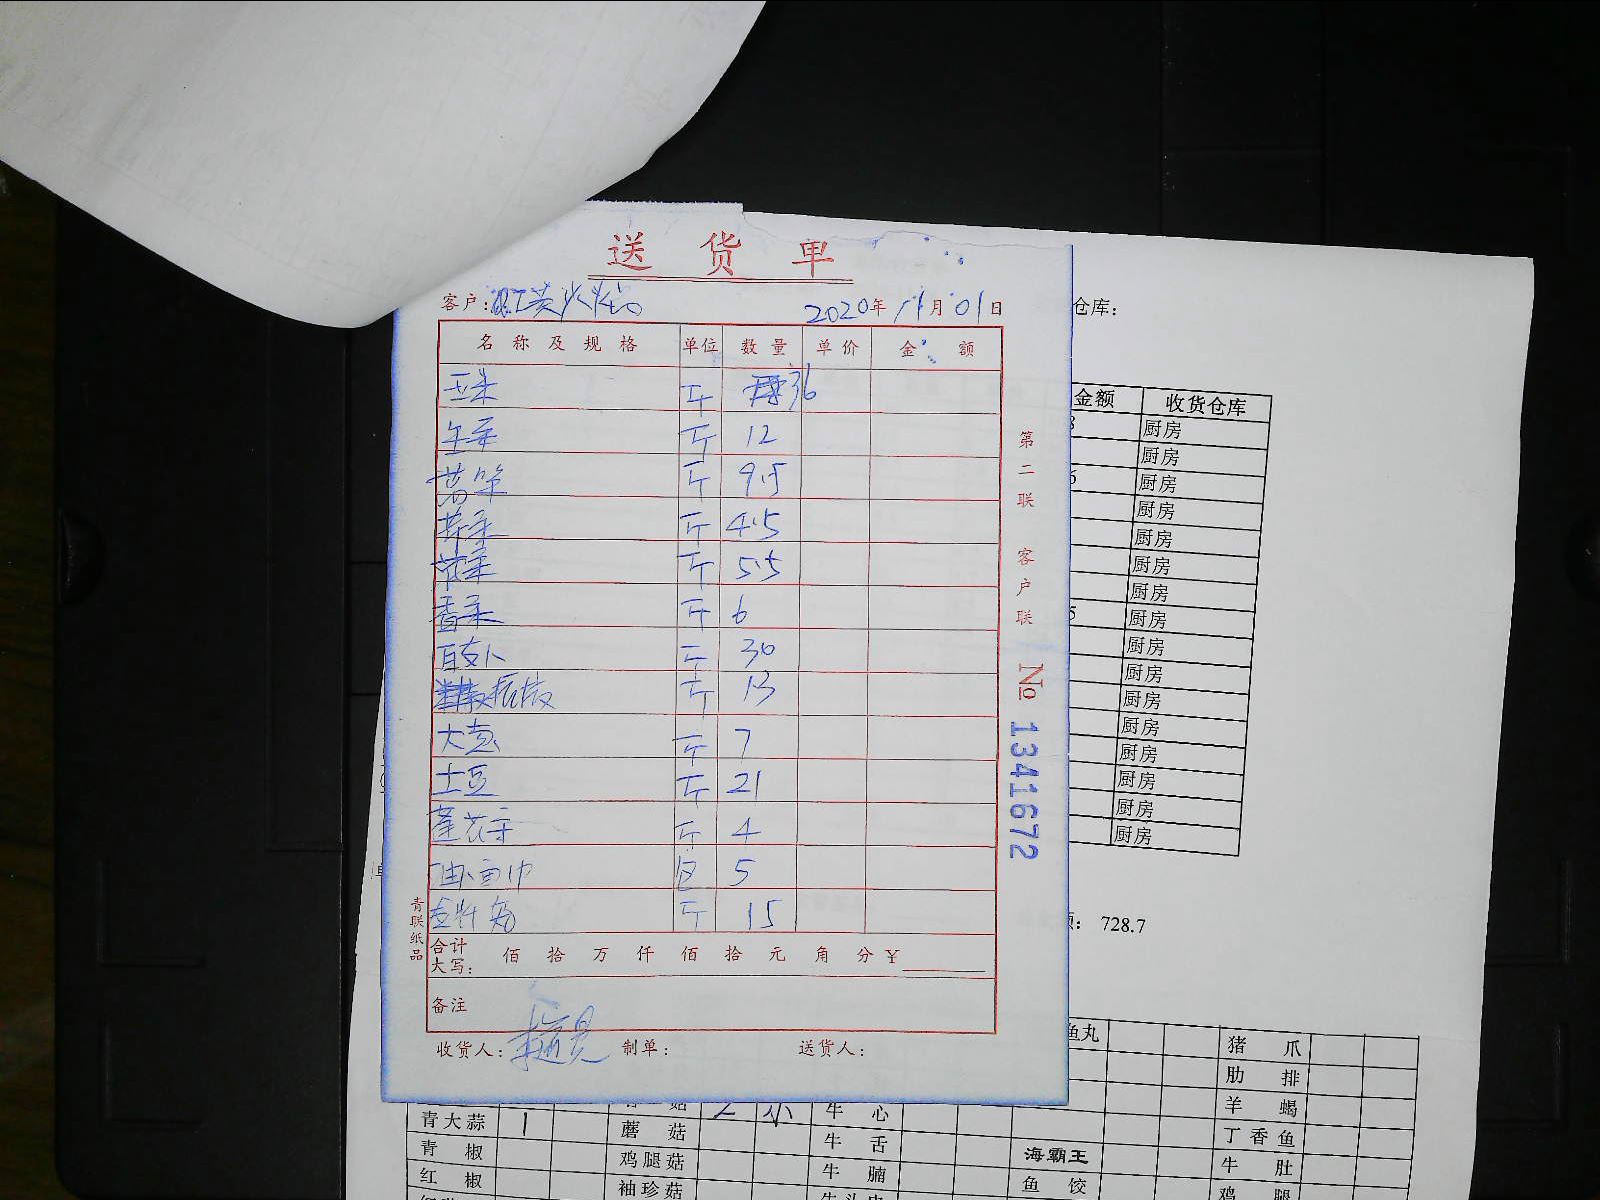 送货单
客户：
2020年11月01日
名称及规格 单位 数量 单价 金额
玉米 斤 36
生菜 斤 12
茼蒿 斤 9.5
斤 4.5
斤 5.5
香菜 斤 6
白萝卜 斤 30
斤 13
大葱 斤 7
土豆 斤 21
斤 4
油面巾 包 5
斤 15
合计大写： 佰 拾 万 仟 佰 拾 元 角 分 ￥
备注
收货人： 制单： 送货人：
青联纸品
第二联 客户联
No 1341672
仓库：
金额 收货仓库
厨房
厨房
厨房
厨房
厨房
厨房
厨房
厨房
厨房
厨房
厨房
厨房
厨房
厨房
厨房
厨房
728.7
鱼丸 猪爪
肋排
菇 牛心 羊蝎
青大蒜 1 蘑菇 牛舌 丁香鱼
青椒 鸡腿菇 牛腩 海霸王 牛肚
红椒 袖珍菇 鱼饺 鸡腿